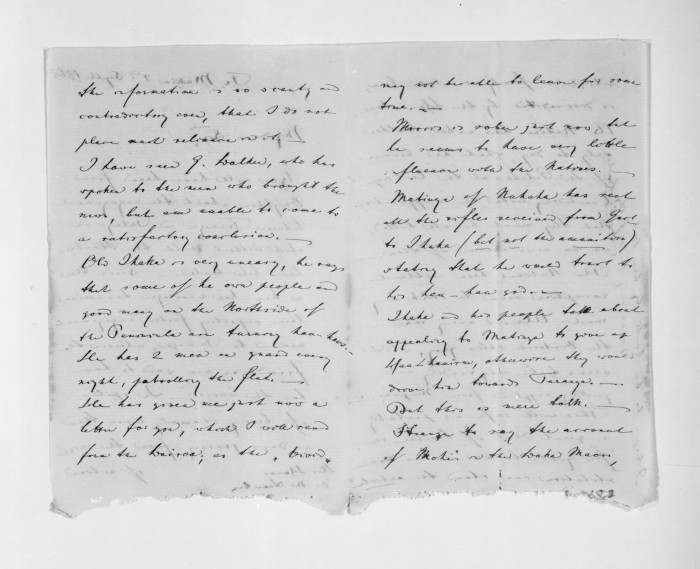 the information is so scanty and
contradictory even, that I do not
place much reliance in it.
I have seen G. Walker, who has
spoken to the men who brought the
news, but am unable to come to
a satisfactory conclusion. —
Old Ihaka is very uneasy, he says
that some of his own people and
good many on the Northside of
the Peninsula are turning hau-hau. —
He has 2 men on guard every
night, patrolling the flat. —
He has given me just now a
letter for you, which I will send
from the Wairoa, as the
may not be able to leave for some
time. —
Morris is sober just now but
he seems to have very little
influence with the Natives. —
Matiaga of Nuhaka has sent
all the rifles received from Govt
to Ihaka (but not the ammunition)
stating that he would trust to
his hau-hau god. —
Ihaka and his people talk about
appealing to Matiaga to give up
Hauhauism, otherwise they would
drive him towards
But this is mere talk. —
Strange to say the account
of Mohi & the Lake Maori,